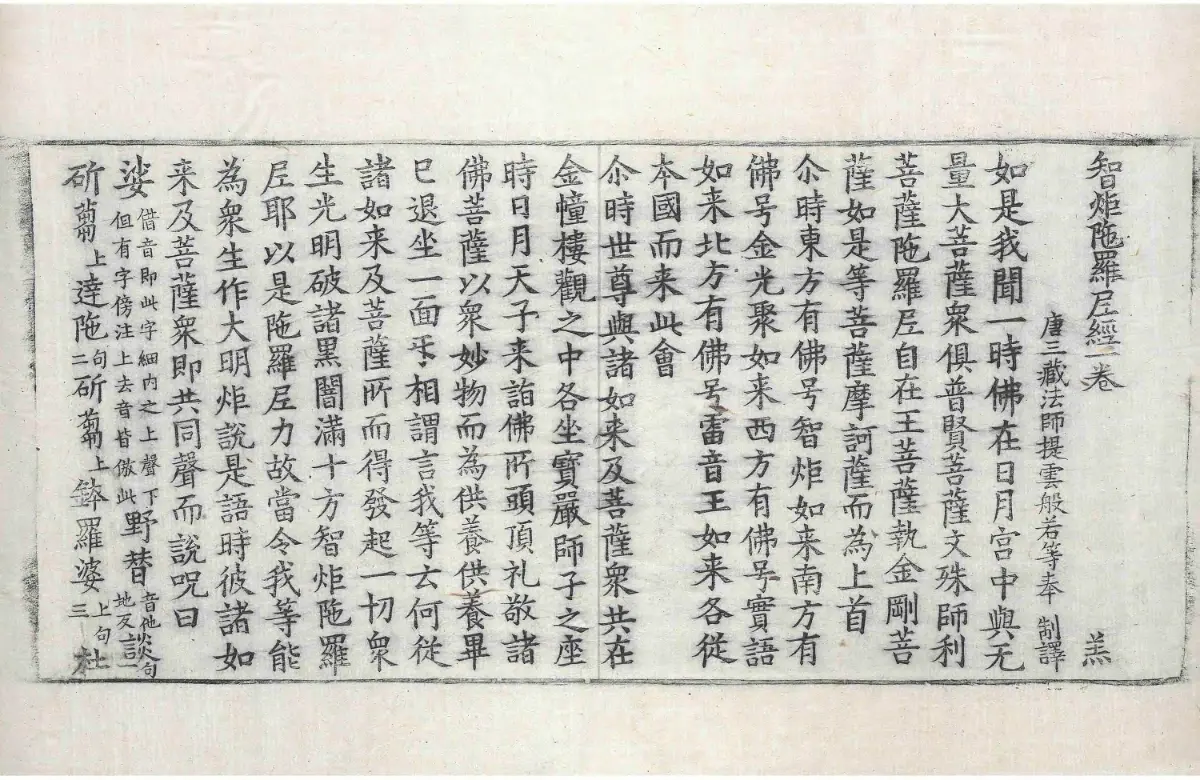 智炬陁羅尼經一卷 羔
唐三藏法師提雲般若等奉 制譯
如是我聞一時佛在日月宮中與无
量大菩薩衆俱普賢菩薩文殊師利
菩薩陁羅尼自在王菩薩執金剛菩
薩如是等菩薩摩訶薩而為上首
尒時東方有佛号智炬如来南方有
佛号金光聚如来西方有佛号實語
如来北方有佛号雷音王如来各從
本國而来此會
尒時世尊與諸如来及菩薩衆共在
金幢樓觀之中各坐寶嚴師子之座
時日月天子来詣佛所頭頂礼敬諸
佛菩薩以衆妙物而為供養供養畢
已退坐一面手相謂言我等云何從
諸如来及菩薩所而得發起一切衆
生光明破諸黑闇滿十方智炬陁羅
尼耶以是陁羅尼力故當令我等能
為衆生作大明炬說是語時彼諸如
来及菩薩衆即共同聲而說呪曰
娑借音即此字細内之上聲下但有字傍注上去音皆倣此野替音他談句地反談一
斫蒭上達陁句二斫蒭上鉢羅婆上句三杜